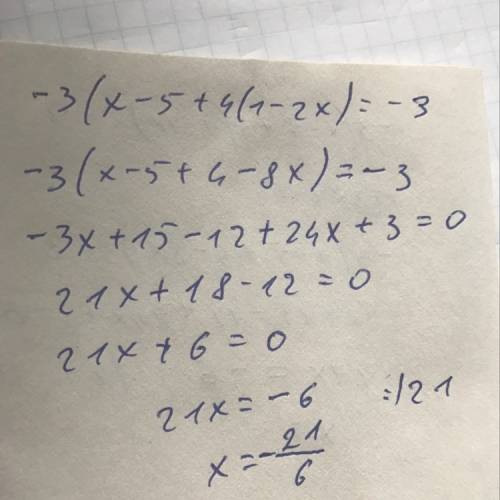 -3(x-5+4(1-2x)=-3
-3(x-5+4-8x)=-3
-3x+15-12+24x+3=0
21x+18-12=0
21x+6=0
21x=-6 :/21
x=-21/6